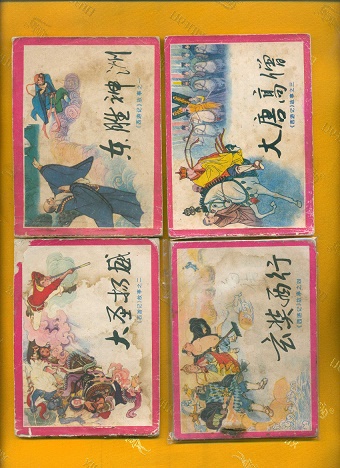 东胜神洲
《西游记》故事之一
大唐高僧
《西游记》故事之三
大圣扬威
《西游记》故事之二
玄奘西行
《西游记》故事之四